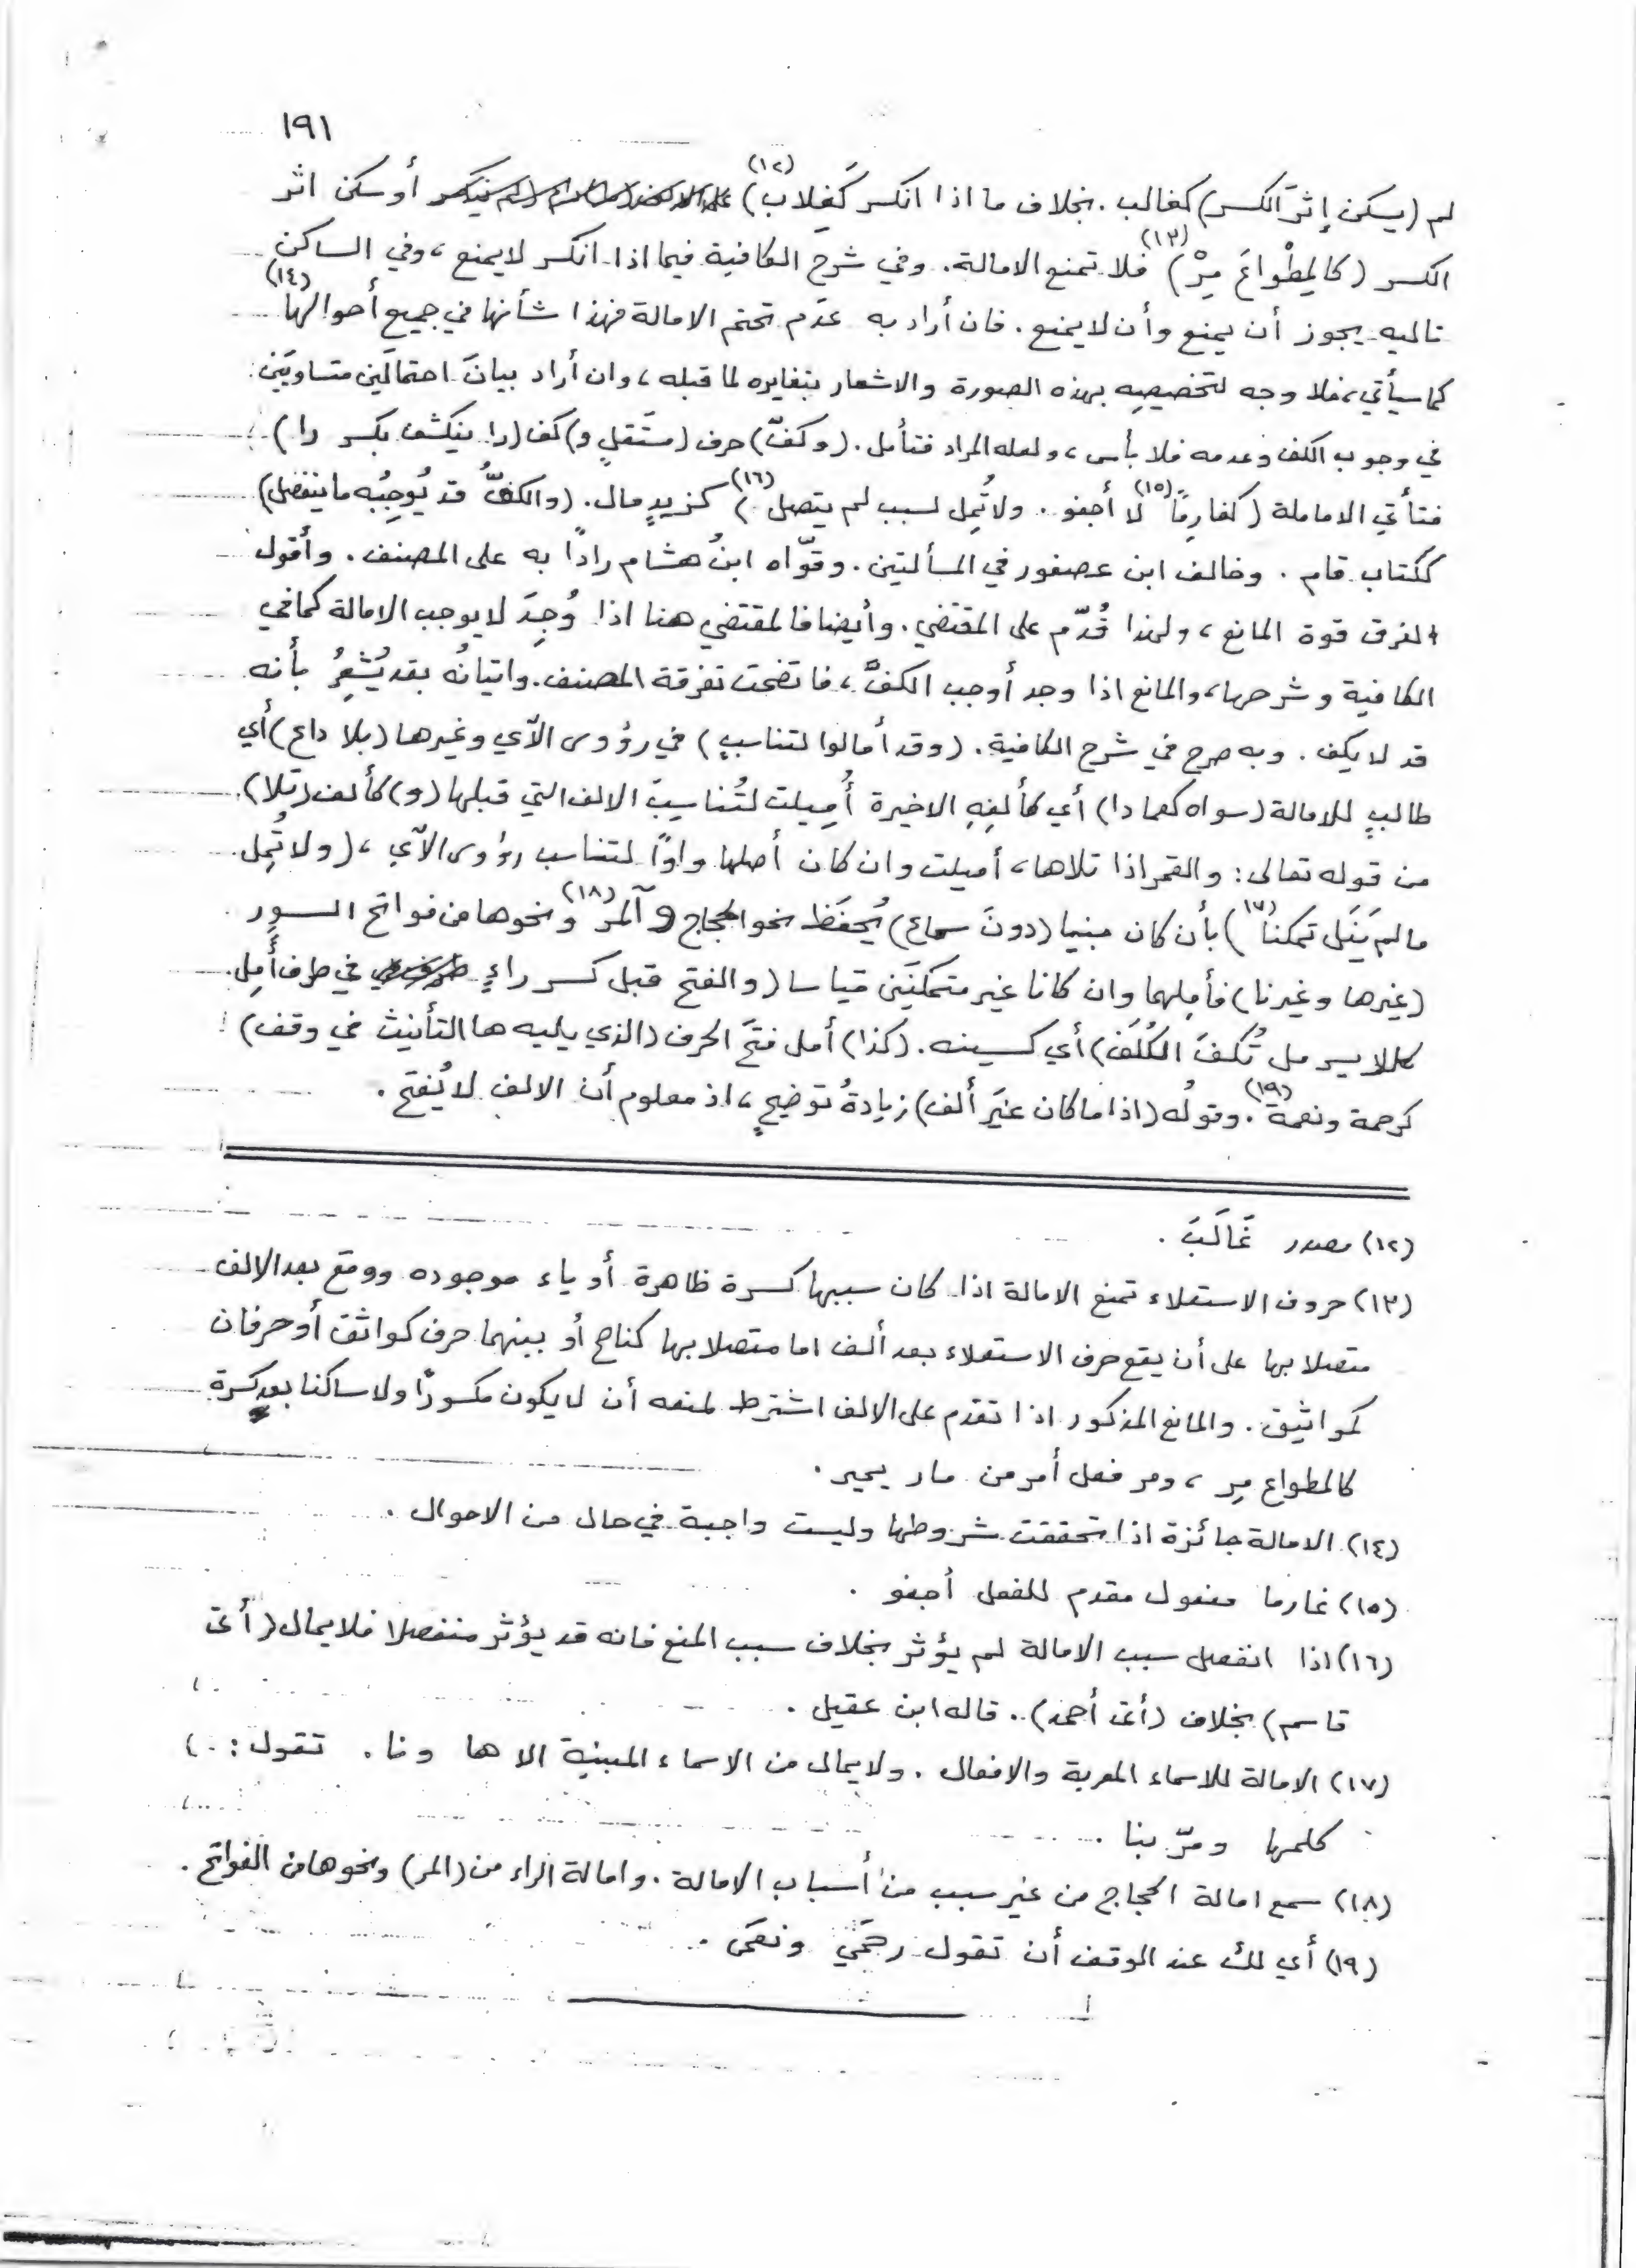 ١٩١
لم (يسكن إثرَ الكسر) كغالب . بخلاف ما اذا انكسر كَغِلاب (١٢) أو سكن اثر
الكسر (كالمِطْواعَ مِرْ) (١٣) فلا تمنع الامالة . وفي شرح الكافية فيما اذا انكسر لا يمنع ، وفي الساكن
تاليه يجوز أن يمنع وأن لا يمنع . فان أراد به عدَم تحتم الامالة فهذا شأنها في جميع أحوالها (١٤)
كما سيأتي ، فلا وجه لتخصيصِه بهذه الصورة والاشعار بتغايره لما قبله ، وان أراد بيانَ احتمالَين متساويَين
في وجوب الكف وعدمه فلا بأس ، ولعله المراد فتأمل . (وكفّ) حرف (مستَعْلٍ و) كف (را ينكشف بكسر را)
فتأتي الاماملة (كغارِمًا (١٥) لا أجفو . ولا تُمِل لسبب لم يتصل (١٦)) كـ لزيدٍ مال . (والكفُّ قد يُوجِبُه ما ينفصل)
ككتاب قام . وخالف ابن عصفور في المسألتين . وقوّاه ابنُ هشام رادًا به على المصنف . وأقول
الفرق قوة المانع ، ولهذا قُدّم على المقتضي . وأيضا فالمقتضي هنا اذا وُجِدَ لا يوجب الامالة كما في
الكافية وشرحها ، والمانع اذا وجد أوجب الكفَّ ، فاتضحت تفرقة المصنف . واتيانُه بقد يُشْعِرُ بأنه
قد لا يكف . وبه صرح في شرح الكافية . (وقد أمالوا لتناسبٍ) في رؤوس الآي وغيرها (بلا داع) أي
طالبٍ للامالة (سواه كعمادا) أي كألِفِهِ الاخيرة أُمِيلت لتُناسِبَ الالف التي قبلها (و) كألف (تلا)
من قوله تعالى : والقمر اذا تلاها ، أميلت وان كان أصلها واوًا لتناسب رؤوس الآي ، (ولا تُمِل
ما لم يَنَل تمكنا (١٧)) بأن كان مبنيا (دونَ سماع) يُحفَظ نحو الحجاج و آلمر (١٨) ونحوها من فواتح السور
(غيرها وغيرنا) فأمِلهما وان كانا غير متمكنَين قياسا (والفتح قبل كسر راءٍ في طرف أَمِل
كللايسر مل تُكفَ الكُلَفَ) أي كسينه . (كذا) أمل فتحَ الحرف (الذي يليه ها التأنيث في وقف)
كرحمة ونعمة (١٩) . وقولُه (اذا ما كان غيرَ ألف) زيادةُ توضيحٍ ، اذ معلوم أن الالف لا يُفتَح .
(١٢) مصدر غَالَبَ .
(١٣) حروف الاستعلاء تمنع الامالة اذا كان سببها كسرة ظاهرة أو ياء موجوده ووقع بعد الالف
متصلا بها على أن يقع حرف الاستعلاء بعد ألف اما متصلا بها كناصح أو بينهما حرف كواثق أو حرفان
كمواثيق . والمانع المذكور اذا تقدم على الالف اشترط لمنعه أن لا يكون مكسورًا ولا ساكنا بعد كسرة
كالمطواع مِر ، ومر فعل أمر من مار يمير .
(١٤) الامالة جائزة اذا تحققت شروطها وليست واجبة في حال من الاحوال .
(١٥) غارما مفعول مقدم للفعل أجفو .
(١٦) اذا انفصل سبب الامالة لم يؤثر بخلاف سبب المنع فانه قد يؤثر منفصلا فلا يمال (أتى
قاسم) بخلاف (أتى أحمد) . قاله ابن عقيل .
(١٧) الامالة للاسماء المعربة والافعال . ولا يمال من الاسماء المبنية الا ها ونا . تقول :
كلمها ومرّ بنا .
(١٨) سمع امالة الحجاج من غير سبب من أسباب الامالة . وامالة الراء من (المر) ونحوها من الفواتح .
(١٩) أي لك عند الوقف أن تقول رحمَى ونعمَى .